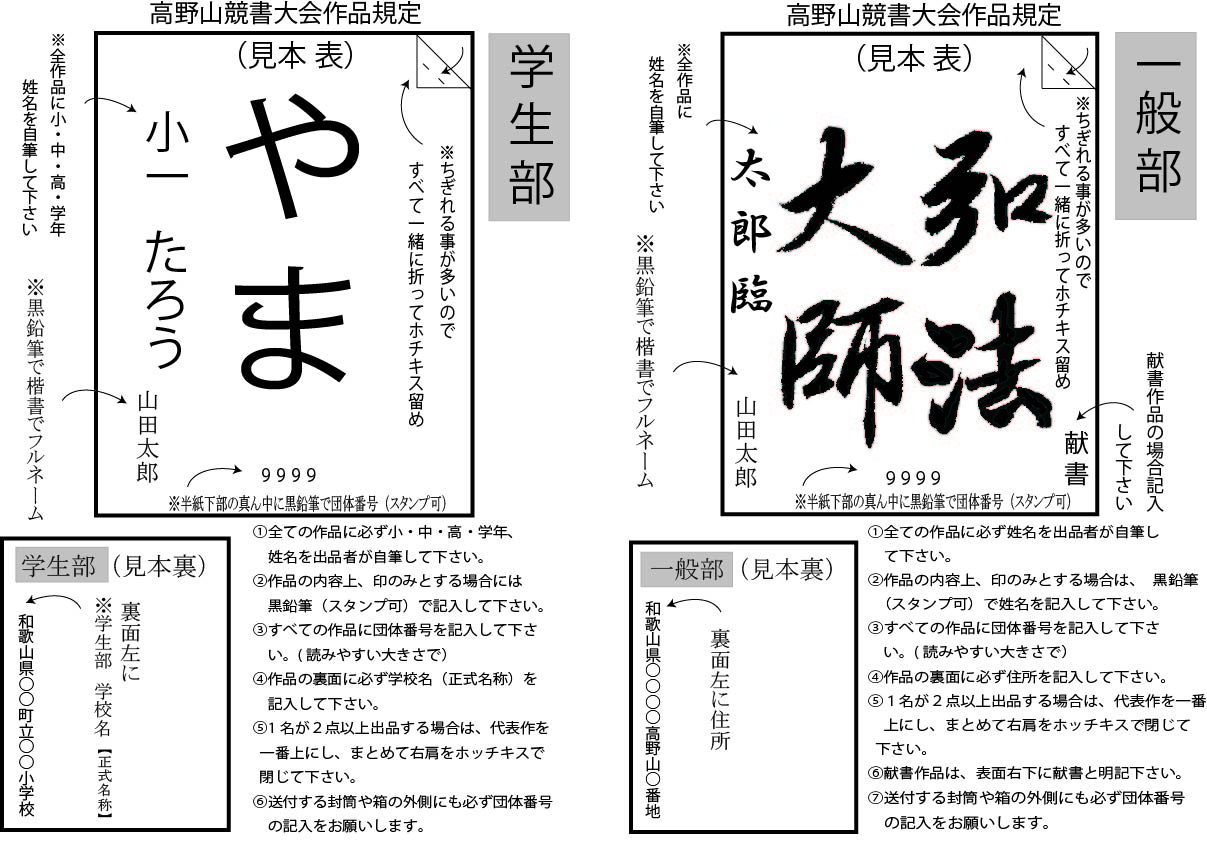 高野山競書大会作品規定
学生部
（見本 表）
※ちぎれる事が多いので
すべて一緒に折ってホチキス留め
やま
小一 たろう
※全作品に小・中・高・学年
姓名を自筆して下さい
※黒鉛筆で楷書でフルネーム
山田太郎
9999
※半紙下部の真ん中に黒鉛筆で団体番号（スタンプ可）
学生部（見本裏）
裏面左に
※学生部 学校名【正式名称】
和歌山県〇〇町立〇〇小学校
①全ての作品に必ず小・中・高・学年、
姓名を出品者が自筆して下さい。
②作品の内容上、印のみとする場合には
黒鉛筆（スタンプ可）で記入して下さい。
③すべての作品に団体番号を記入して下さ
い。( 読みやすい大きさで）
④作品の裏面に必ず学校名（正式名称）を
記入して下さい。
⑤1 名が２点以上出品する場合は、代表作を
一番上にし、まとめて右肩をホッチキスで
閉じて下さい。
⑥送付する封筒や箱の外側にも必ず団体番号
の記入をお願いします。
高野山競書大会作品規定
一般部
（見本 表）
※ちぎれる事が多いので
すべて一緒に折ってホチキス留め
弘法
大師
太郎臨
※全作品に
姓名を自筆して下さい
※黒鉛筆で楷書でフルネーム
山田太郎
献書作品の場合記入
して下さい
献書
9999
※半紙下部の真ん中に黒鉛筆で団体番号（スタンプ可）
一般部（見本裏）
裏面左に住所
和歌山県〇〇〇〇高野山〇番地
①全ての作品に必ず姓名を出品者が自筆し
て下さい。
②作品の内容上、印のみとする場合は、 黒鉛筆
（スタンプ可）で姓名を記入して下さい。
③すべての作品に団体番号を記入して下さ
い。（読みやすい大きさで）
④作品の裏面に必ず住所を記入して下さい。
⑤１名が２点以上出品する場合は、代表作を一番
上にし、まとめて右肩をホッチキスで閉じて
下さい。
⑥献書作品は、表面右下に献書と明記下さい。
⑦送付する封筒や箱の外側にも必ず団体番号
の記入をお願いします。